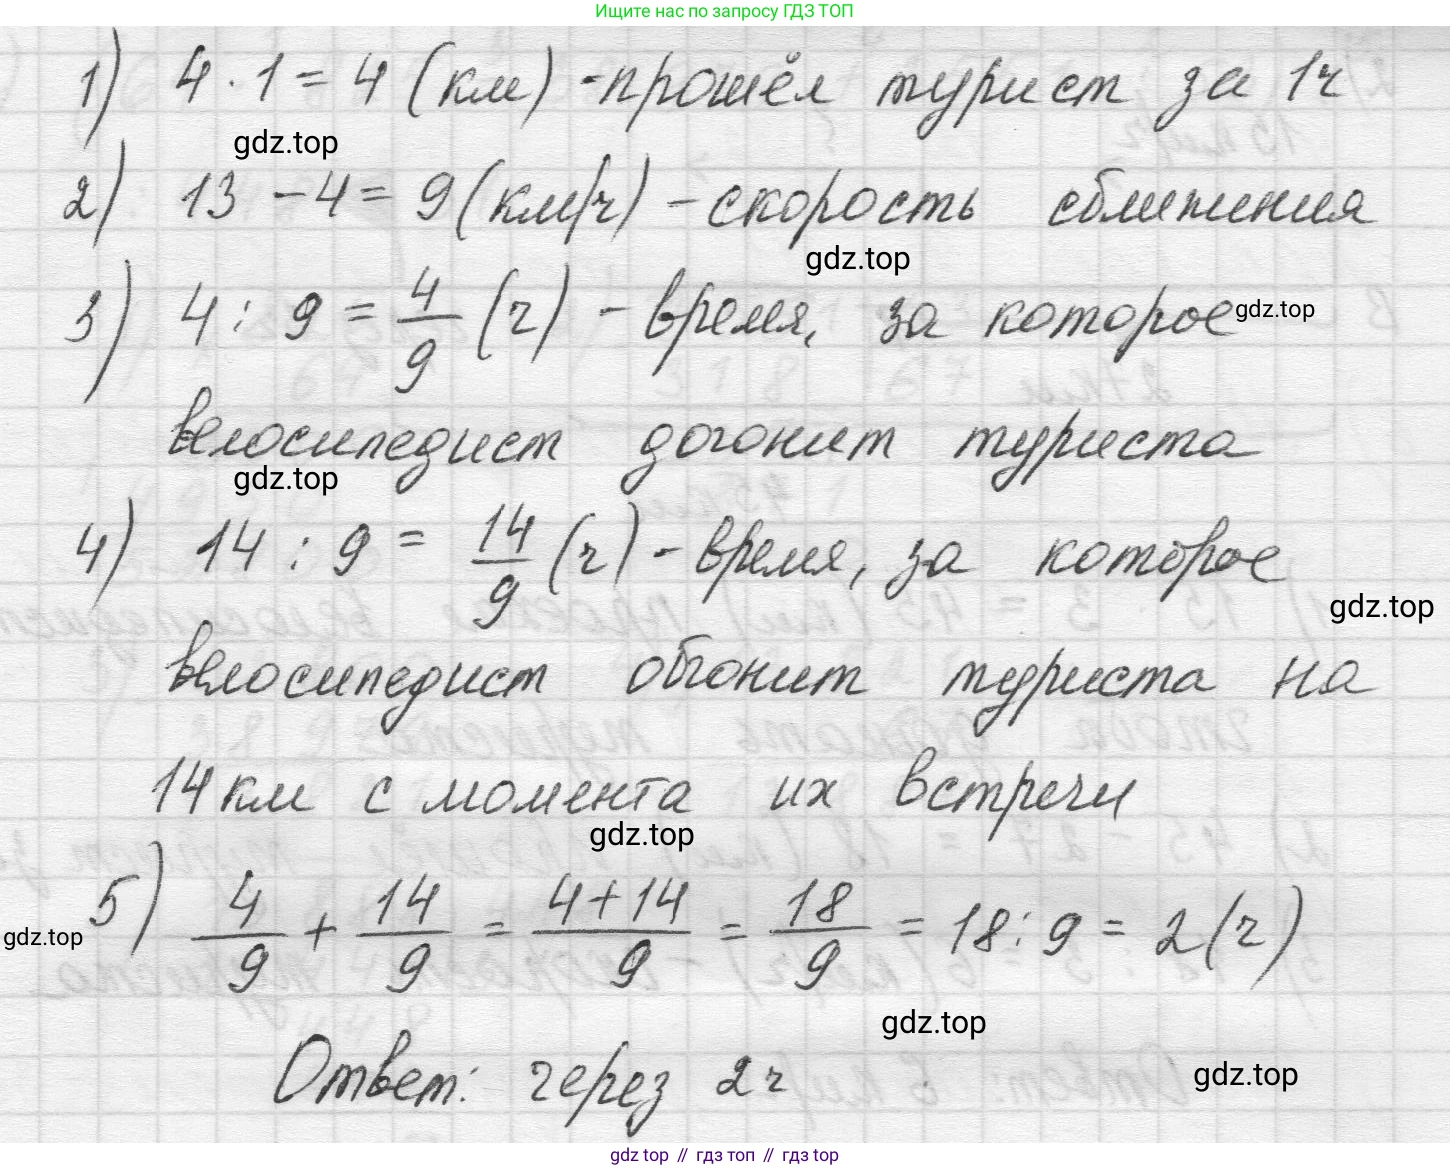 Ищите нас по запросу ГДЗ ТОП
1) 4 · 1 = 4 (км) - прошёл турист за 1ч
gdz.top
2) 13 - 4 = 9 (км/ч) - скорость сближения
gdz.top
3) 4 : 9 = 4/9 (ч) - время, за которое
gdz.top
велосипедист догонит туриста
gdz.top
4) 14 : 9 = 14/9 (ч) - время, за которое
gdz.top
велосипедист обгонит туриста на
14 км с момента их встречи
gdz.top
5) 4/9 + 14/9 = 4+14/9 = 18/9 = 18 : 9 = 2 (ч)
gdz.top
gdz.top
Ответ: через 2ч
gdz.top
gdz top // гдз топ // gdz top